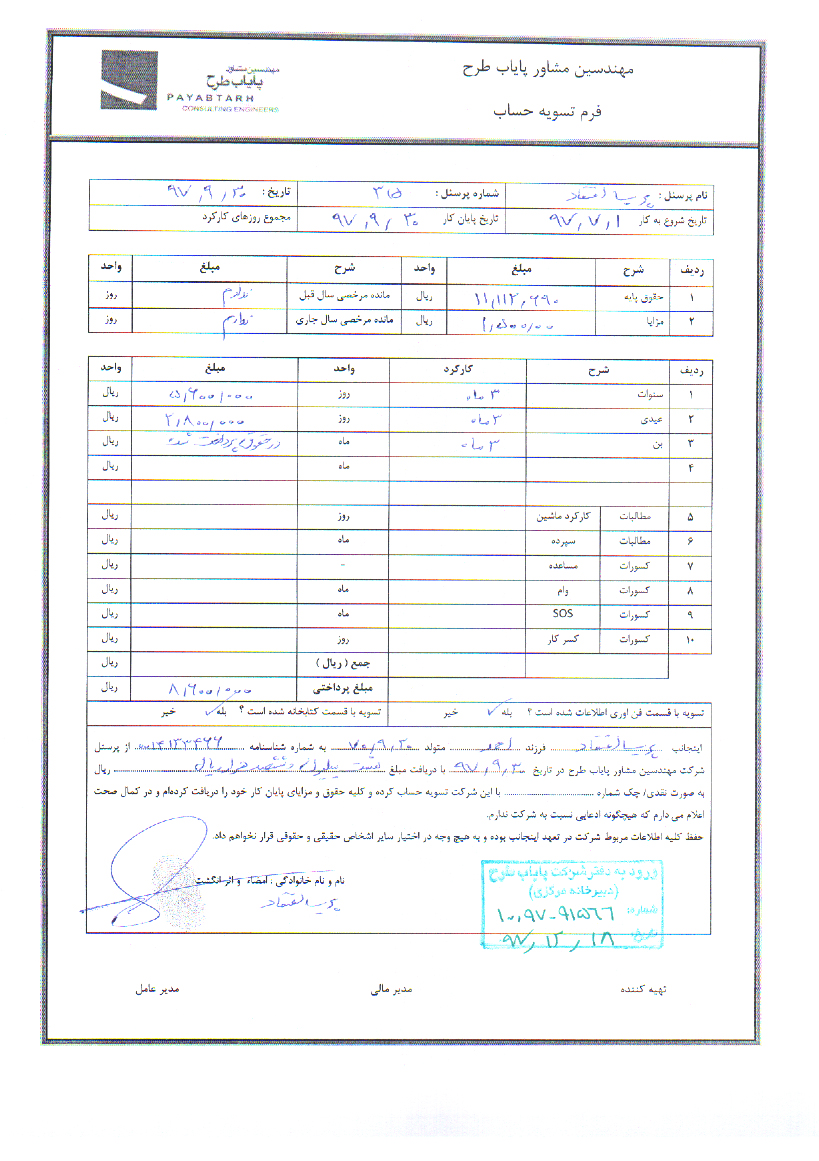 مهندسین مشاور پایاب طرح
فرم تسویه حساب
مهندسین مشاور
پایاب طرح
PAYABTARH
CONSULTING ENGINEERS
نام پرسنل : پریسا اعتقاد شماره پرسنل : ۳۱۵ تاریخ : ۹۷,۹,۳۰
تاریخ شروع به کار ۹۷,۷,۱ تاریخ پایان کار ۹۷,۹,۳۰ مجموع روزهای کارکرد
ردیف شرح مبلغ واحد شرح مبلغ واحد
۱ حقوق پایه ۱۱,۱۱۲,۶۹۰ ریال مانده مرخصی سال قبل ندارم روز
۲ مزایا ۱,۵۰۰,۰۰۰ ریال مانده مرخصی سال جاری ندارم روز
ردیف شرح کارکرد واحد مبلغ واحد
۱ سنوات ۳ ماه روز ۵,۶۰۰,۰۰۰ ریال
۲ عیدی ۳ ماه روز ۲,۸۰۰,۰۰۰ ریال
۳ بن ۳ ماه ماه در حقوق پرداخت شده ریال
۴ ماه ریال
۵ مطالبات کارکرد ماشین روز ریال
۶ مطالبات سپرده ماه ریال
۷ کسورات مساعده - ریال
۸ کسورات وام ماه ریال
۹ کسورات SOS ماه ریال
۱۰ کسورات کسر کار روز ریال
جمع ( ریال ) ریال
مبلغ پرداختی ۸,۶۰۰,۰۰۰ ریال
تسویه با قسمت فن آوری اطلاعات شده است ؟ بله ✓ خیر تسویه با قسمت کتابخانه شده است ؟ بله ✓ خیر
اینجانب پریسا اعتقاد فرزند احمد متولد ۷۰,۹,۳۰ به شماره شناسنامه از پرسنل
شرکت مهندسین مشاور پایاب طرح در تاریخ ۹۷,۹,۳۰ با دریافت مبلغ هشت میلیون و ششصد هزار ریال ریال
به صورت نقدی/ چک شماره با این شرکت تسویه حساب کرده و کلیه حقوق و مزایای پایان کار خود را دریافت کرده‌ام و در کمال صحت
اعلام می دارم که هیچگونه ادعایی نسبت به شرکت ندارم.
حفظ کلیه اطلاعات مربوط شرکت در تعهد اینجانب بوده و به هیچ وجه در اختیار سایر اشخاص حقیقی و حقوقی قرار نخواهم داد.
نام و نام خانوادگی ، امضاء و اثر انگشت
پریسا اعتقاد
ورود به دفتر شرکت پایاب طرح
(دبیرخانه مرکزی)
شماره: ۱۰,۹۷-۹۱۵۶۶
تاریخ: ۹۷,۱۲,۱۸
تهیه کننده مدیر مالی مدیر عامل